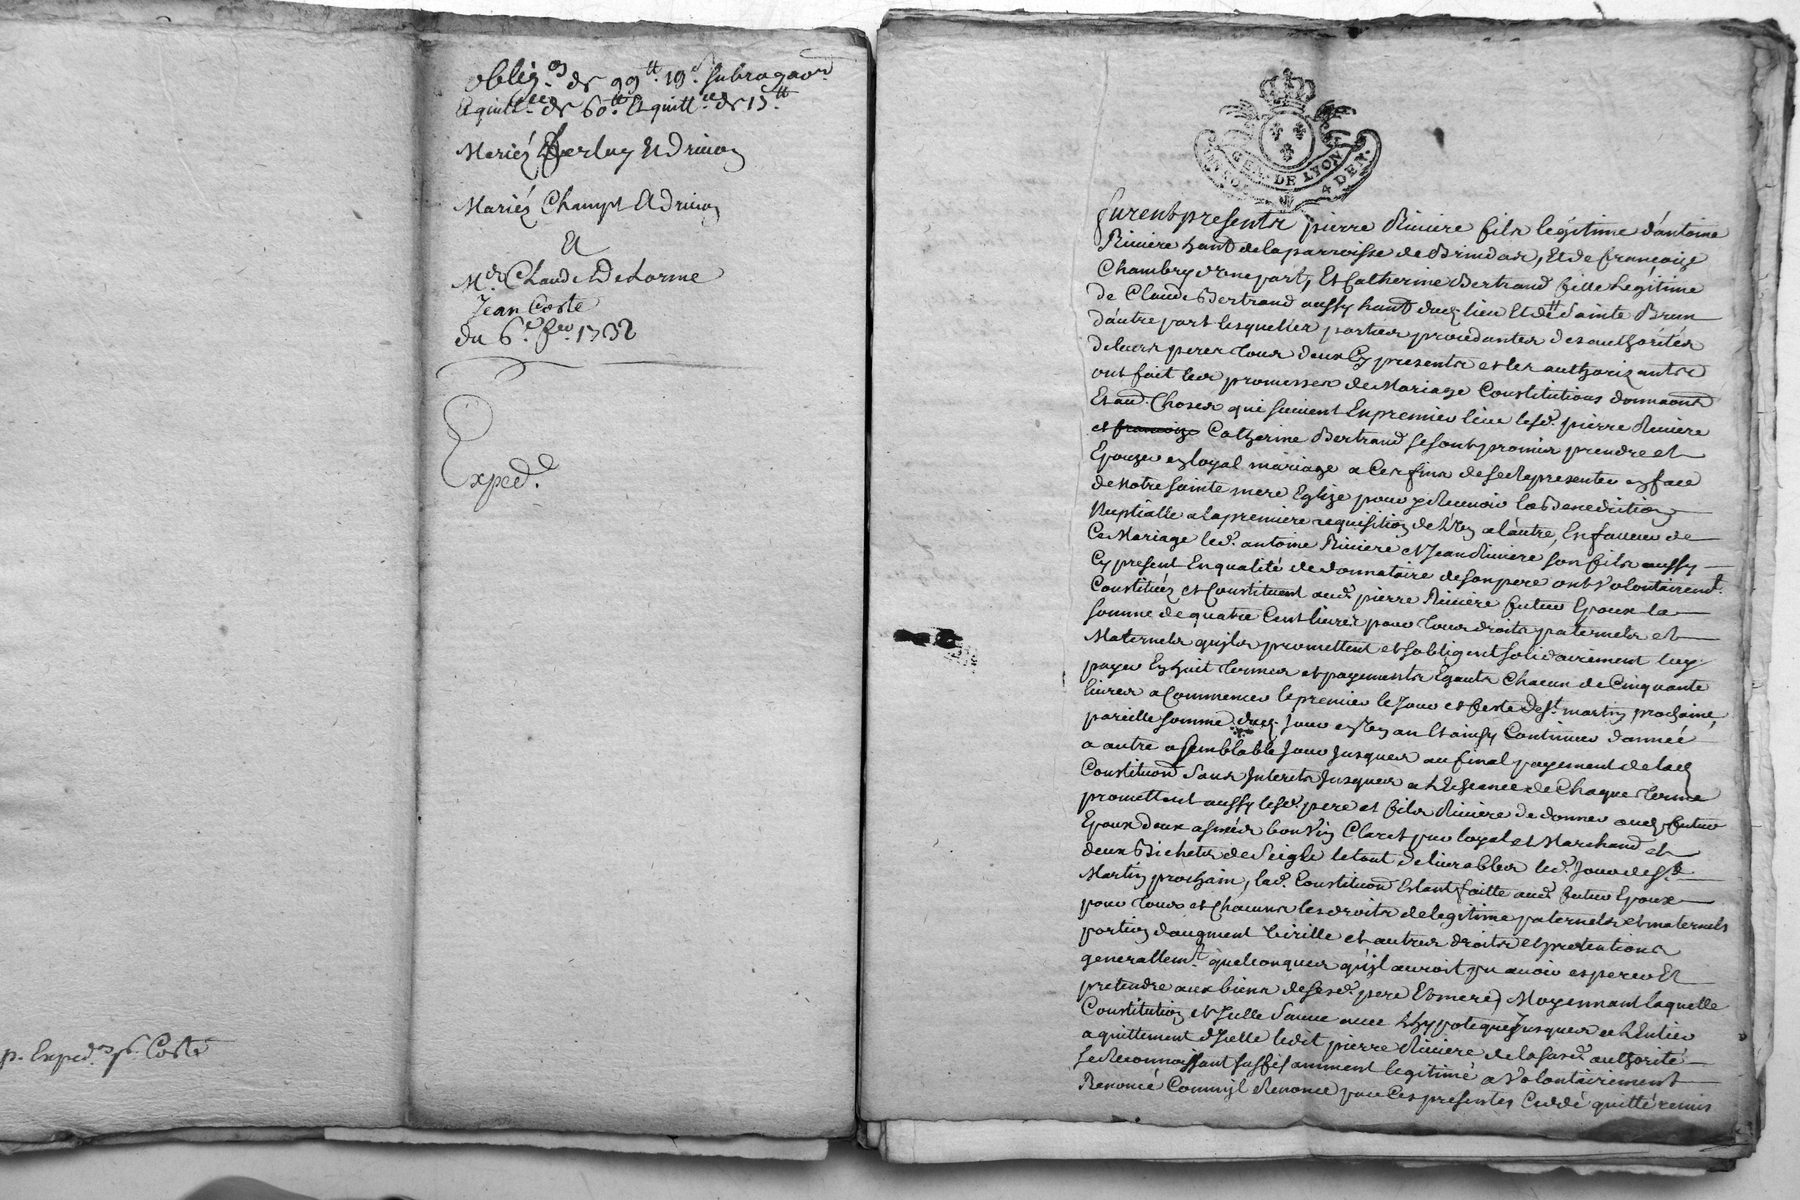 oblig.on de 99tt 19s subrogaon
Et quitt.ce de 60tt Et quitt.ce de 15tt
Mariéz Et Drivon
Mariéz Champt Et Drivon
Et
Mr. Claude Delorme
Jean Coste
du 6e. 1732
Exped.e
p. Exped.on pr. Coste
GEN. DE LYON
4 DEN.
furent presents pierre Riviere fils légitime d'antoine
Riviere hant de la parroisse de Brindas, Et de françoize
Chambry d'une part, Et Catherine Bertrand fille Légitime
de Claude Bertrand aussy hant dud. lieu Et de Sainte Brun
d'autre part lesquelles parties procedantes des authorités
de leurs peres tous deux Cy presents et les authorizants
ont fait les promesses de Mariage Constitutions donnaons
Et aud. Choses qui suivent En premier lieu lesd. pierre Riviere
et francoize Catherine Bertrand se sont promis prendre et
Epouzer en loyal mariage a Ces fins de se representer en face
de Notre Sainte mere Eglize pour y Recevoir la Benediction
Nuptialle a la premiere requisition de L'un a l'autre, En faveur de
Ce Mariage led. antoine Riviere et Jean Riviere son fils aussy
Cy present En qualité de donnataire de son pere ont volontairemt.
Constitués et Constituent aud. pierre Riviere futur Epoux la
somme de quatre Cent livres pour tous droits paternels et
Maternels qu'ils promettent et s'obligent solidairement luy
payer En huit termes et payements Egauts Chacun de Cinquante
livres a Commencer le premier le Jour et feste de St. martin prochaine,
pareille somme dud. Jour en un an Et ainsy Continuer d'année
a autre a semblable Jour Jusques au final payement de lad.
Constituon Sans Interets Jusques a L'Echeance de Chaque terme
promettent aussy lesd. pere et fils Riviere de donner aud. futur
Epoux deux asnées bon vin Claret pur loyal et Marchand et
deux Bichets de Seigle le tout delivrables led. Jour de St.
Martin prochain, lad. Constituon Estant faitte aud. futur Epoux
pour tous et Chacuns les droits de legitime paternels et maternels
portion d'augment virille et autres droits et pretentions
generallemt. quelconques qu'il auroit pu avoir esperer Et
pretendre aux biens de sesd. pere Et mere, Moyennant laquelle
Constitution et Icelle Sauve avec L'hypoteque Jusques a L'Entier
aquittement d'Icelle ledit pierre Riviere de lasusd. authorité
se Reconnoissant suffisamment legitimé a volontairement
Renoncé Comm'il Renonce par Ces presentes Ceddé quitté remis